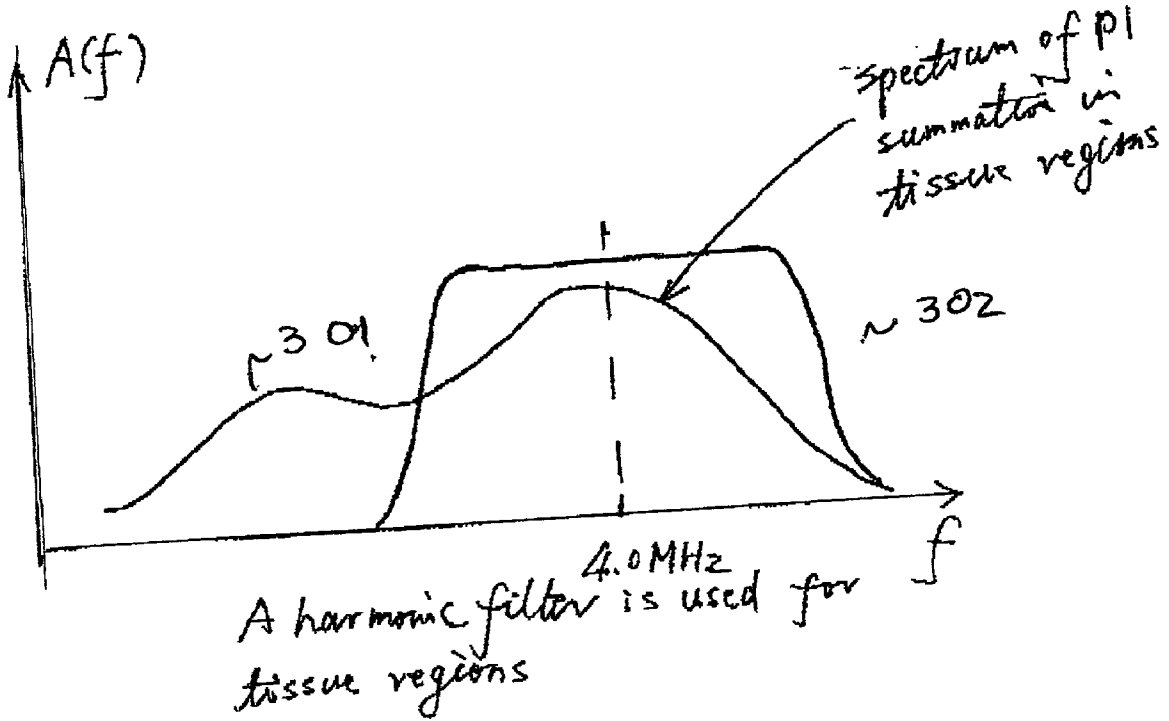 A(f)
spectrum of PI
summation in
tissue regions
~301
~302
4.0MHz
f
A harmonic filter is used for
tissue regions